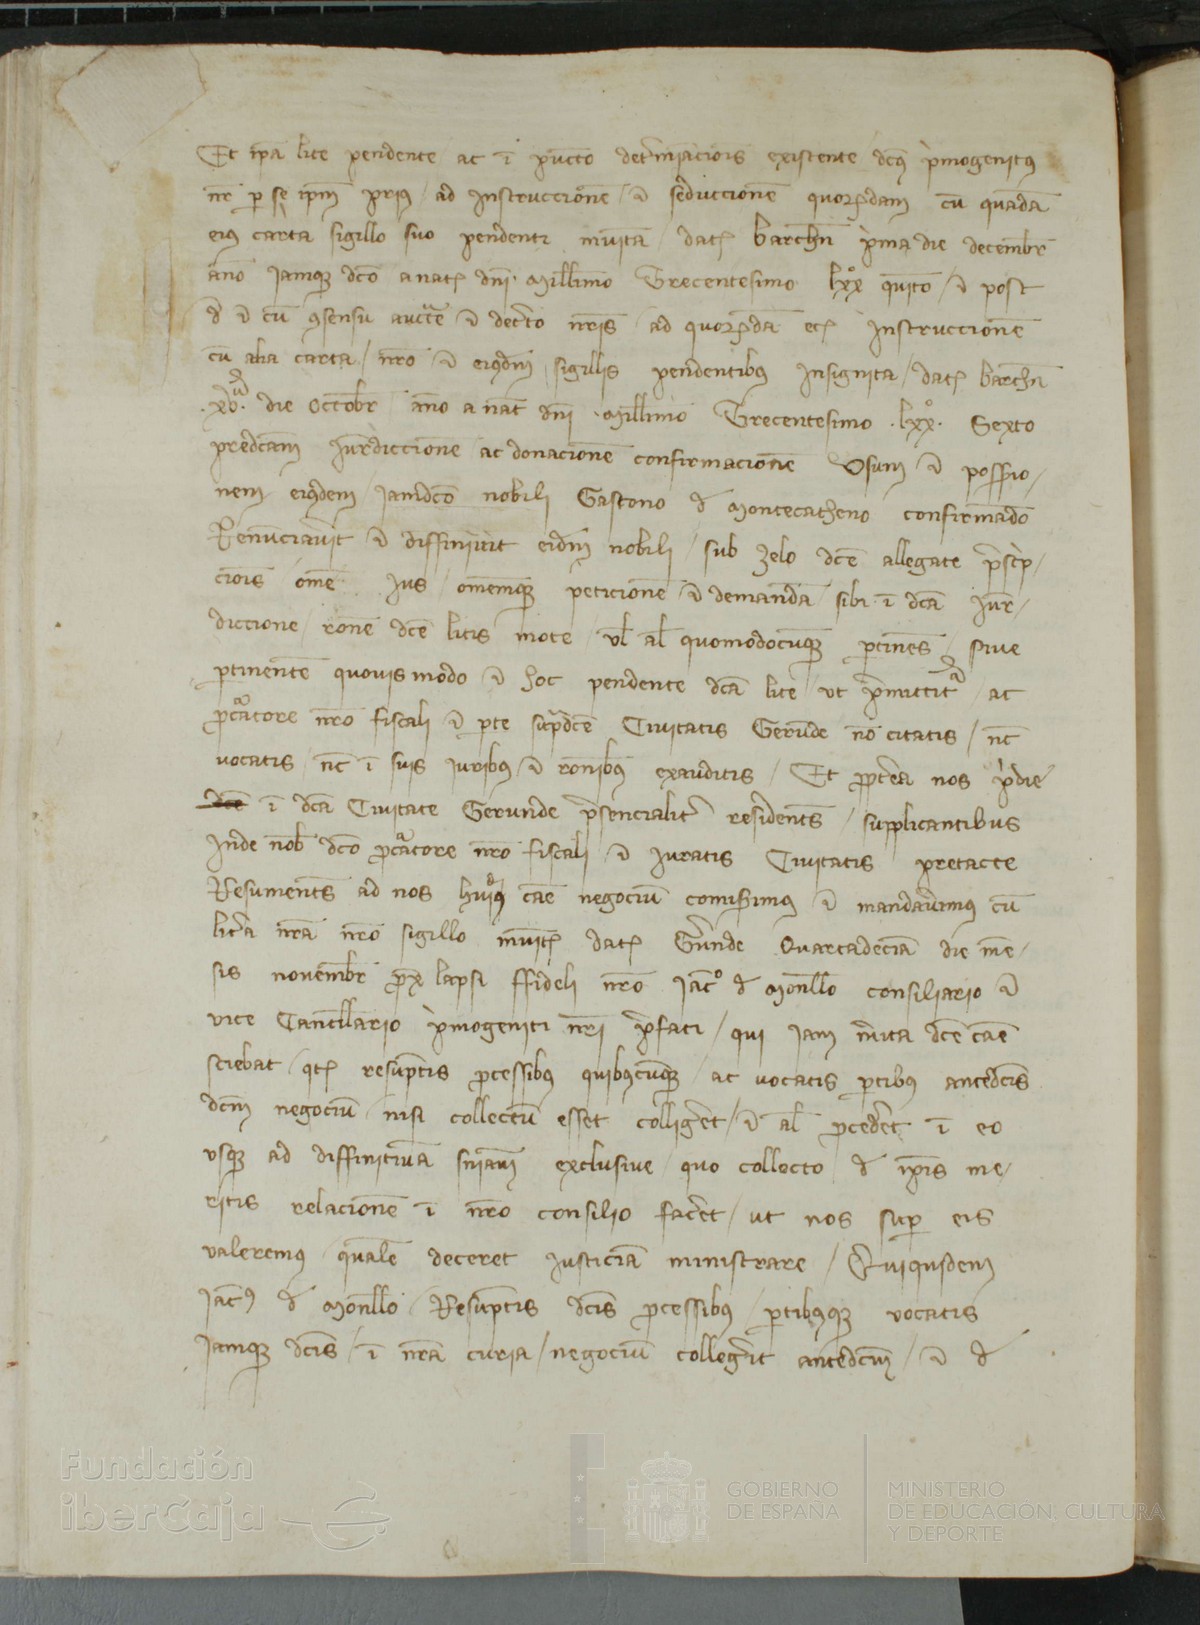 Et ipa lite pendente ac i pucto determinacois existente dcus pmogenitus
nr per se ipm prius / ad Instruccione / et seduccione quorumdam cu quadā
eius carta sigillo suo pendenti munita dat Barchn pma die decembr
āno Iamque dco a nat dni Millimo Trecentesimo lxxº quito / et post
et cu consensu auctte et decreto nris ad quorumdā etc Instruccione
cu alia carta / nro et eiusdem sigillis pendentibus Insignita / dat Barchn
.xva. die Octobr āno a nat dni Millimo Trecentesimo .lxxº. Sexto
predcam Jurdiccione ac donacione confirmacione Usum et possessio/
nem eiusdem / iamdco nobili Gastono d Montecatheno confirmado
Renunciavit et diffinivit eidm nobili / sub zelo dce allegate prescp/
ciois ome Jus omemque peticione et demandā sibi i dcā Jur/
diccione / rone dce litis mote / vl al quomodocumque ptines / sive
ptinente quovismodo et hoc pendente dcā lite ut premittitur / ac
procatore nro fiscali et pte supdce Civitatis Gerunde nō citatis / nec
vocatis / nec i suis Juribus et ronibus exauditis / Et propterea nos pdie
i dcā Civitate Gerunde presencialiter residents / supplicantibus
Inde nob dco procatore nro fiscali et Juratis Civitatis pretacte
Resuments ad nos huius cae negociu comisimus et mandavimus cu
litera nrā nro sigillo munit dat Gerunde Quartadecia die me/
sis novembr prox lapsi ffideli nro Jaco d Monllo consiliario et
vice Cancellario pmogeniti nri prefati / qui iam merita dce cae
sciebat / qt resuptis processibus quibuscumque / ac vocatis ptibus antedcis
dcm negociu nisi collectu esset colligeret / et al procederet i eo
usque ad diffinitivā sniam exclusive / quo collecto d ipis me/
ritis relacione i nro consilio faceret / ut nos super eis
valeremus qualē deceret Justiciā ministrare / Quiquidem
Jacus d Monllo Resuptis dcis processibus / ptibusque vocatis
Jamque dcis / i nrā curia / negociu collegerit antedcm / et d
Fundación
iberCaja
GOBIERNO
DE ESPAÑA
MINISTERIO
DE EDUCACIÓN, CULTURA
Y DEPORTE